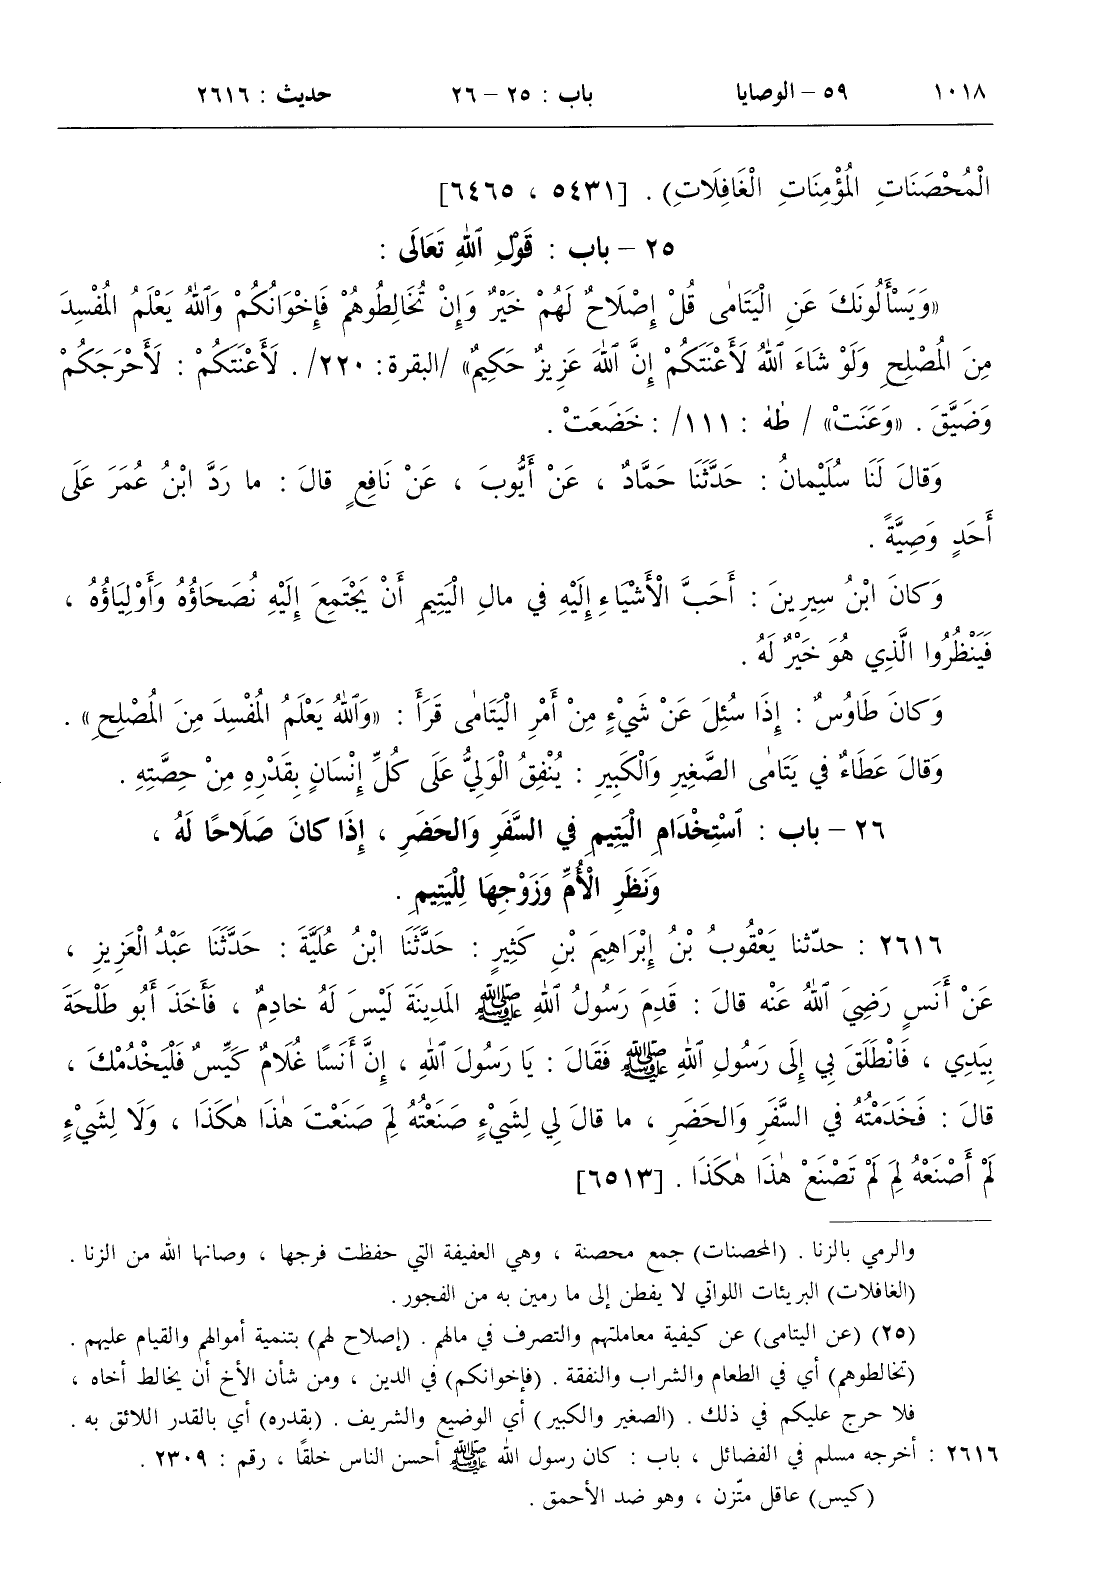 ١٠١٨ ٥٩ – الوصايا باب : ٢٥ – ٢٦ حديث : ٢٦١٦
الْمُحْصَنَاتِ الْمُؤْمِنَاتِ الْغَافِلَاتِ) . [٥٤٣١ ، ٦٤٦٥]
٢٥ – باب : قَوْلِ ٱللهِ تَعَالَى :
«وَيَسْأَلُونَكَ عَنِ الْيَتَامٰى قُلْ إِصْلَاحٌ لَهُمْ خَيْرٌ وَإِنْ تُخَالِطُوهُمْ فَإِخْوَانُكُمْ وَٱللهُ يَعْلَمُ الْمُفْسِدَ
مِنَ الْمُصْلِحِ وَلَوْ شَاءَ ٱللهُ لَأَعْنَتَكُمْ إِنَّ ٱللهَ عَزِيزٌ حَكِيمٌ» /البقرة: ٢٢٠/ . لَأَعْنَتَكُمْ : لَأَحْرَجَكُمْ
وَضَيَّقَ . «وَعَنَتْ» / طٰهٰ : ١١١/ : خَضَعَتْ .
وَقالَ لَنَا سُلَيْمانُ : حَدَّثَنَا حَمَّادٌ ، عَنْ أَيُّوبَ ، عَنْ نَافِعٍ قالَ : ما رَدَّ ابْنُ عُمَرَ عَلَى
أَحَدٍ وَصِيَّةً .
وَكانَ ابْنُ سِيرِينَ : أَحَبَّ الْأَشْيَاءِ إِلَيْهِ في مالِ الْيَتِيمِ أَنْ يَجْتَمِعَ إِلَيْهِ نُصَحَاؤُهُ وَأَوْلِيَاؤُهُ ،
فَيَنْظُرُوا الَّذِي هُوَ خَيْرٌ لَهُ .
وَكانَ طَاوُسٌ : إِذَا سُئِلَ عَنْ شَيْءٍ مِنْ أَمْرِ الْيَتَامٰى قَرَأَ : «وَٱللهُ يَعْلَمُ الْمُفْسِدَ مِنَ الْمُصْلِحِ» .
وَقالَ عَطَاءٌ في يَتَامٰى الصَّغِيرِ وَالْكَبِيرِ : يُنْفِقُ الْوَلِيُّ عَلَى كُلِّ إِنْسَانٍ بِقَدْرِهِ مِنْ حِصَّتِهِ .
٢٦ – باب : ٱسْتِخْدَامِ الْيَتِيمِ في السَّفَرِ وَالحَضَرِ ، إِذَا كانَ صَلَاحًا لَهُ ،
وَنَظَرِ الْأُمِّ وَزَوْجِهَا لِلْيَتِيمِ .
٢٦١٦ : حدّثنا يَعْقُوبُ بْنُ إِبْرَاهِيمَ بْنِ كَثِيرٍ : حَدَّثَنَا ابْنُ عُلَيَّةَ : حَدَّثَنَا عَبْدُ الْعَزِيزِ ،
عَنْ أَنَسٍ رَضِيَ ٱللهُ عَنْه قالَ : قَدِمَ رَسُولُ ٱللهِ ﷺ المَدِينَةَ لَيْسَ لَهُ خادِمٌ ، فَأَخَذَ أَبُو طَلْحَةَ
بِيَدِي ، فَانْطَلَقَ بِي إِلَى رَسُولِ ٱللهِ ﷺ فَقَالَ : يَا رَسُولَ ٱللهِ ، إِنَّ أَنَسًا غُلَامٌ كَيِّسٌ فَلْيَخْدُمْكَ ،
قالَ : فَخَدَمْتُهُ في السَّفَرِ وَالحَضَرِ ، ما قالَ لِي لِشَيْءٍ صَنَعْتُهُ لِمَ صَنَعْتَ هٰذَا هٰكَذَا ، وَلَا لِشَيْءٍ
لَمْ أَصْنَعْهُ لِمَ لَمْ تَصْنَعْ هٰذَا هٰكَذَا . [٦٥١٣]
والرمي بالزنا . (المحصنات) جمع محصنة ، وهي العفيفة التي حفظت فرجها ، وصانها الله من الزنا .
(الغافلات) البريئات اللواتي لا يفطن إلى ما رمين به من الفجور .
(٢٥) (عن اليتامى) عن كيفية معاملتهم والتصرف في مالهم . (إصلاح لهم) بتنمية أموالهم والقيام عليهم .
(تخالطوهم) أي في الطعام والشراب والنفقة . (فإخوانكم) في الدين ، ومن شأن الأخ أن يخالط أخاه ،
فلا حرج عليكم في ذلك . (الصغير والكبير) أي الوضيع والشريف . (بقدره) أي بالقدر اللائق به .
٢٦١٦ : أخرجه مسلم في الفضائل ، باب : كان رسول الله ﷺ أحسن الناس خلقًا ، رقم : ٢٣٠٩ .
(كيس) عاقل متّزن ، وهو ضد الأحمق .